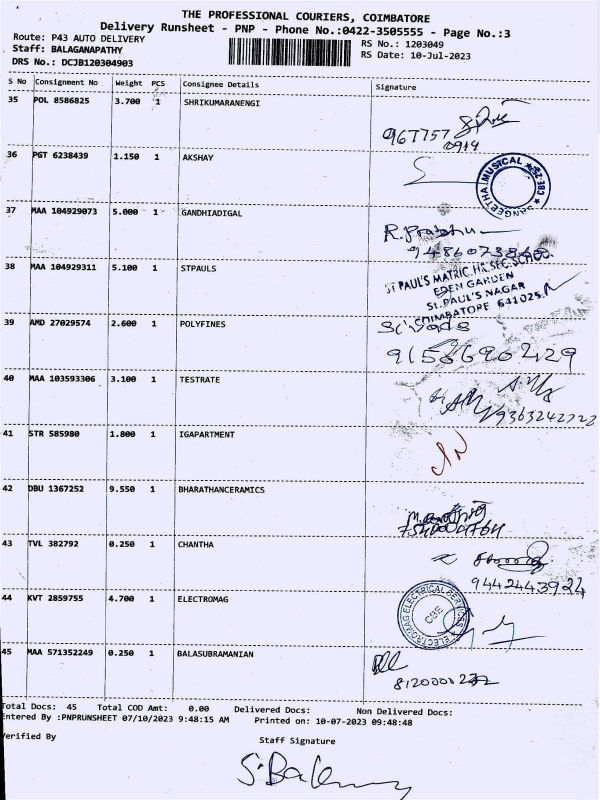 THE PROFESSIONAL COURIERS, COIMBATORE
Delivery Runsheet - PNP - Phone No.:0422-3505555 - Page No.:3
Route: P43 AUTO DELIVERY
RS No.: 1203049
Staff: BALAGANAPATHY
RS Date: 10-Jul-2023
DRS No.: DCJB120304903
S No Consignment No Weight PCS Consignee Details Signature
35 POL 8586825 3.700 1 SHRIKUMARANENGI
967757
0919
36 PGT 6238439 1.150 1 AKSHAY
SANGEETHA MUSICAL
37 MAA 104929073 5.000 1 GANDHIADIGAL
R. Prabhu
38 MAA 104929311 5.100 1 STPAULS
ST PAUL'S MATRIC.HR.SEC.SCHOOL
EDEN GARDEN
St. PAUL'S NAGAR
COIMBATORE 641025.
39 AMD 27029574 2.600 1 POLYFINES
40 MAA 103593306 3.100 1 TESTRATE
41 STR 585980 1.800 1 IGAPARTMENT
42 DBU 1367252 9.550 1 BHARATHANCERAMICS
43 TVL 382792 0.250 1 CHANTHA
9442443924
44 KVT 2859755 4.700 1 ELECTROMAG
ELECTROMAG ELECTRICAL SERVICES
CBE
45 MAA 571352249 0.250 1 BALASUBRAMANIAN
Total Docs: 45 Total COD Amt: 0.00 Delivered Docs: Non Delivered Docs:
Entered By :PNPRUNSHEET 07/10/2023 9:48:15 AM Printed on: 10-07-2023 09:48:48
Verified By Staff Signature